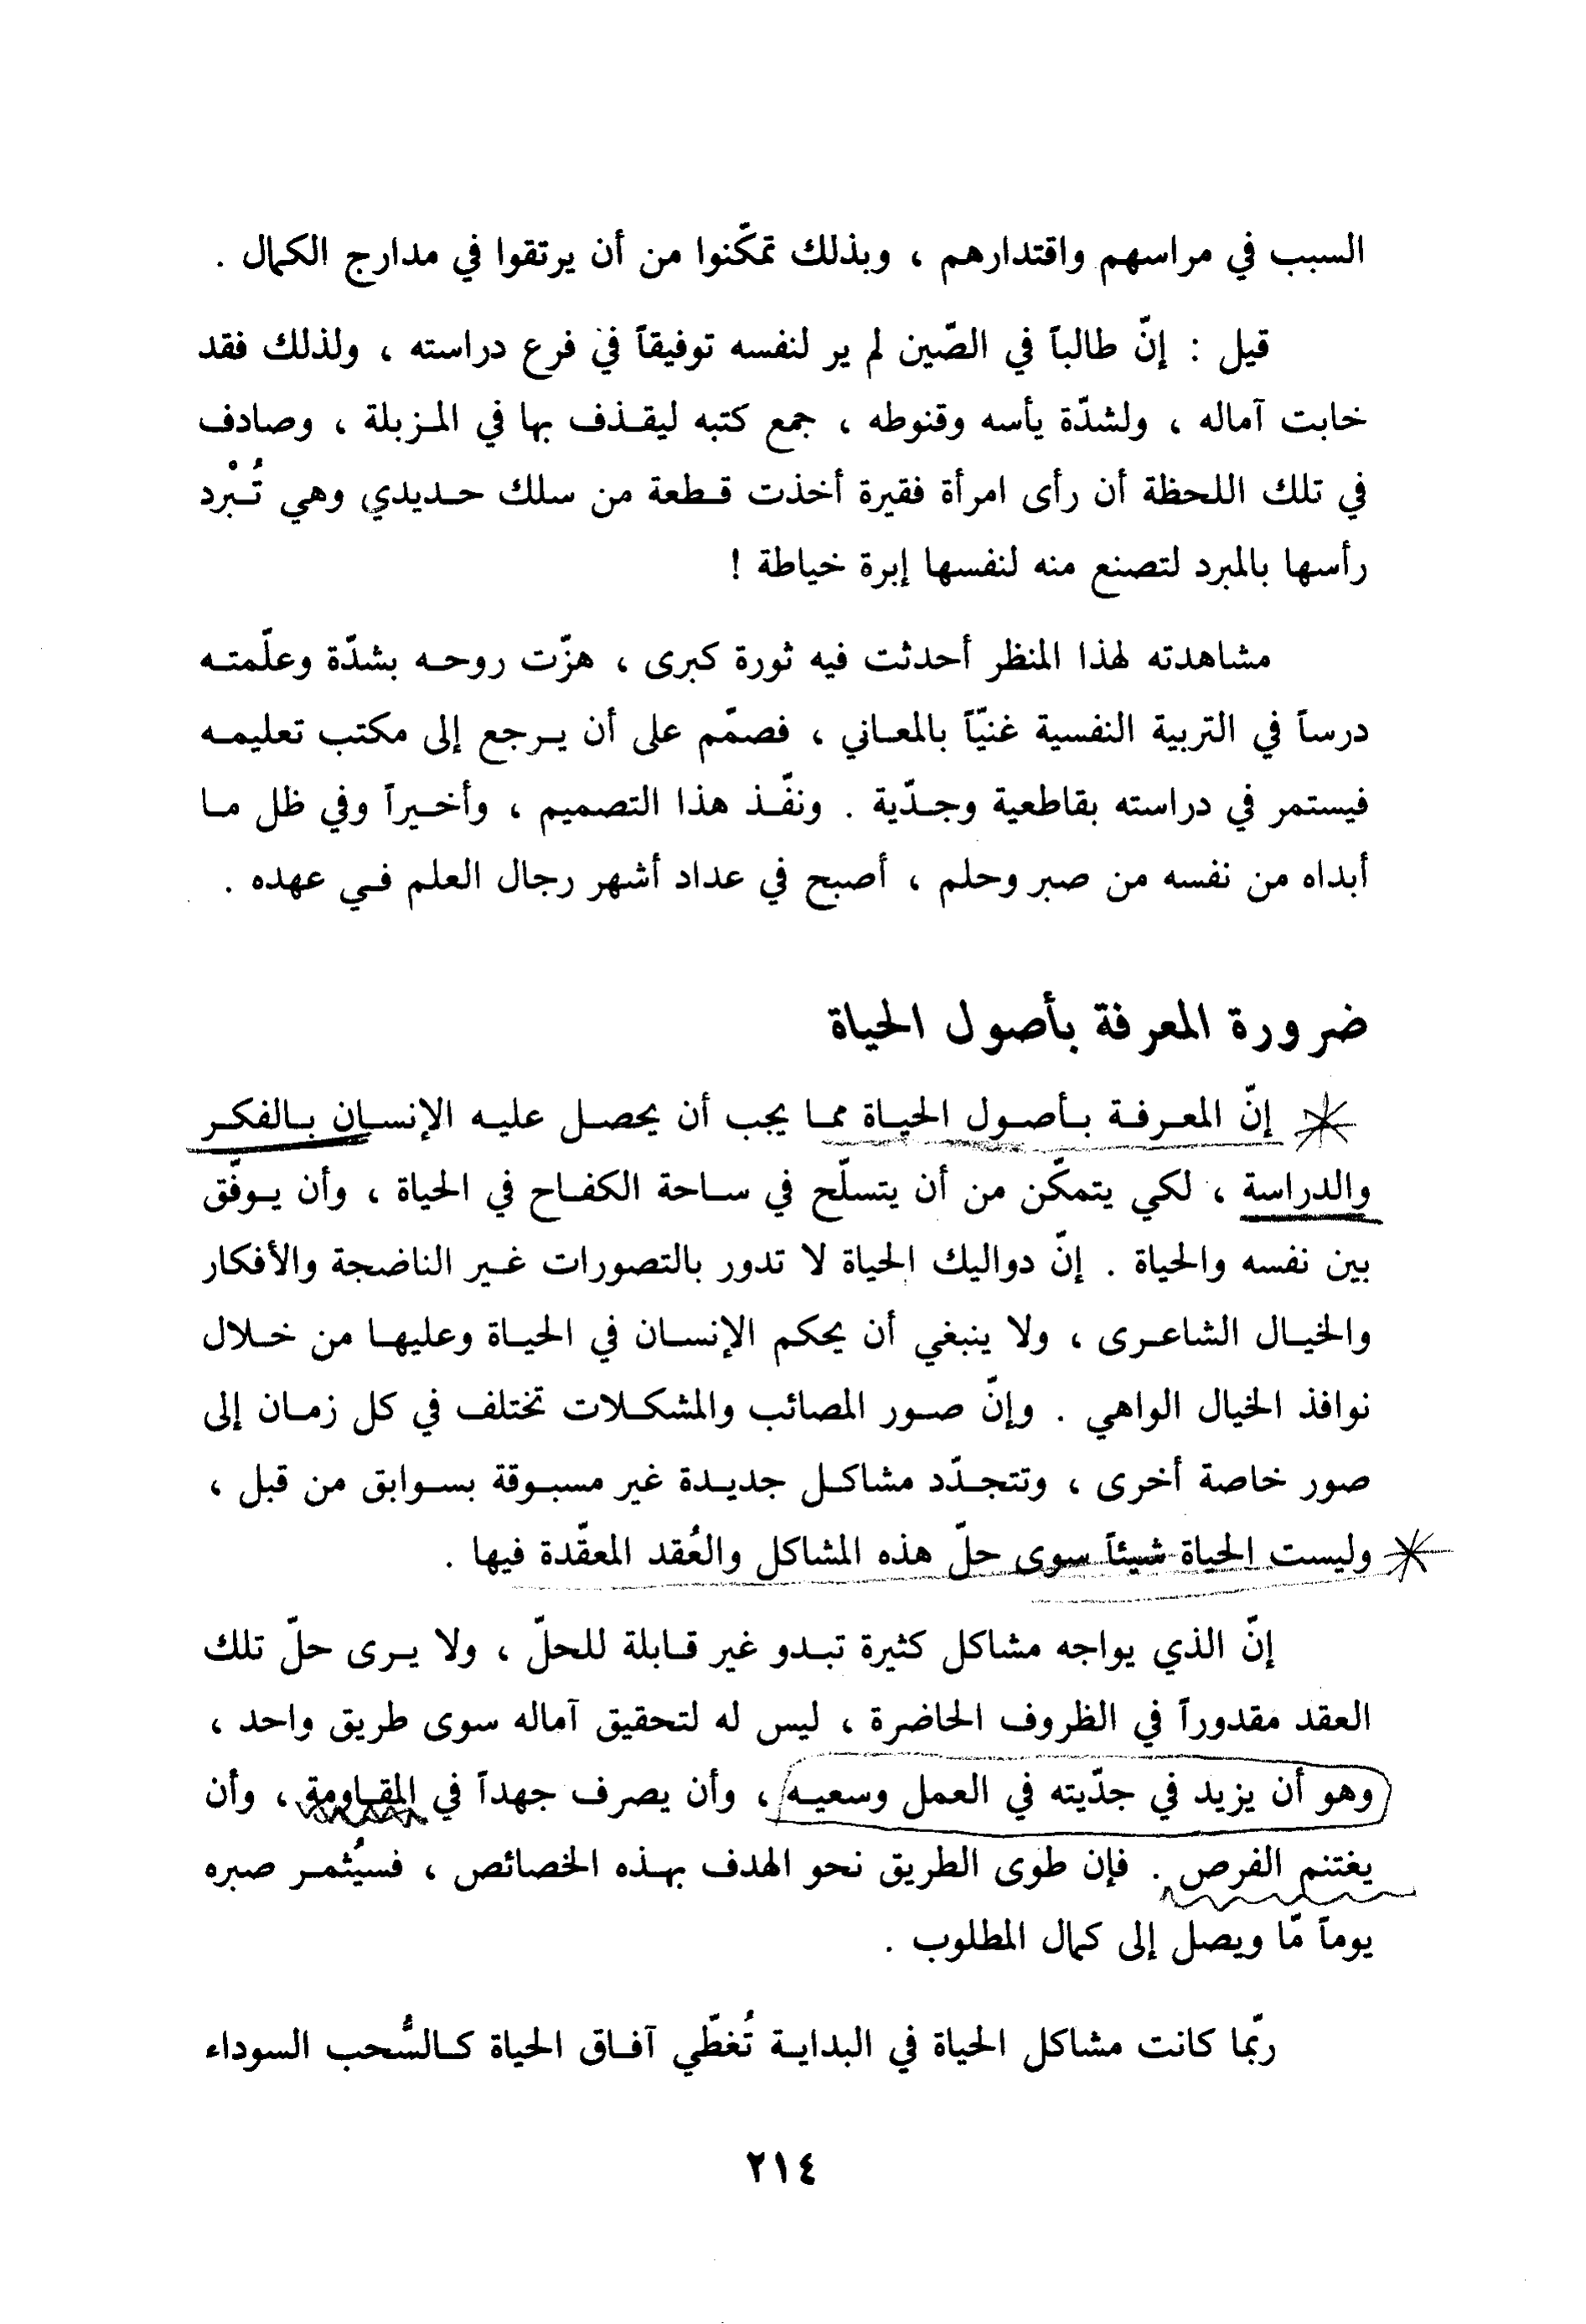 السبب في مراسهم واقتدارهم ، وبذلك تمكّنوا من أن يرتقوا في مدارج الكمال .
قيل : إنّ طالباً في الصّين لم ير لنفسه توفيقاً في فرع دراسته ، ولذلك فقد
خابت آماله ، ولشدّة يأسه وقنوطه ، جمع كتبه ليقذف بها في المزبلة ، وصادف
في تلك اللحظة أن رأى امرأة فقيرة أخذت قطعة من سلك حديدي وهي تُبْرد
رأسها بالمبرد لتصنع منه لنفسها إبرة خياطة !
مشاهدته لهذا المنظر أحدثت فيه ثورة كبرى ، هزّت روحه بشدّة وعلّمته
درساً في التربية النفسية غنيّاً بالمعاني ، فصمّم على أن يرجع إلى مكتب تعليمه
فيستمر في دراسته بقاطعية وجدّية . ونفّذ هذا التصميم ، وأخيراً وفي ظل ما
أبداه من نفسه من صبر وحلم ، أصبح في عداد أشهر رجال العلم في عهده .
ضرورة المعرفة بأصول الحياة
إنّ المعرفة بأصول الحياة مما يجب أن يحصل عليه الإنسان بالفكر
والدراسة ، لكي يتمكّن من أن يتسلّح في ساحة الكفاح في الحياة ، وأن يوفّق
بين نفسه والحياة . إنّ دواليك الحياة لا تدور بالتصورات غير الناضجة والأفكار
والخيال الشاعرى ، ولا ينبغي أن يحكم الإنسان في الحياة وعليها من خلال
نوافذ الخيال الواهي . وإنّ صور المصائب والمشكلات تختلف في كل زمان إلى
صور خاصة أخرى ، وتتجدّد مشاكل جديدة غير مسبوقة بسوابق من قبل ،
وليست الحياة شيئاً سوى حلّ هذه المشاكل والعُقد المعقّدة فيها .
إنّ الذي يواجه مشاكل كثيرة تبدو غير قابلة للحلّ ، ولا يرى حلّ تلك
العقد مقدوراً في الظروف الحاضرة ، ليس له لتحقيق آماله سوى طريق واحد ،
وهو أن يزيد في جدّيته في العمل وسعيه ، وأن يصرف جهداً في المقاومة ، وأن
يغتنم الفرص . فإن طوى الطريق نحو الهدف بهذه الخصائص ، فسيُثمر صبره
يوماً مّا ويصل إلى كمال المطلوب .
ربّما كانت مشاكل الحياة في البداية تُغطّي آفاق الحياة كالسُّحب السوداء
٢١٤